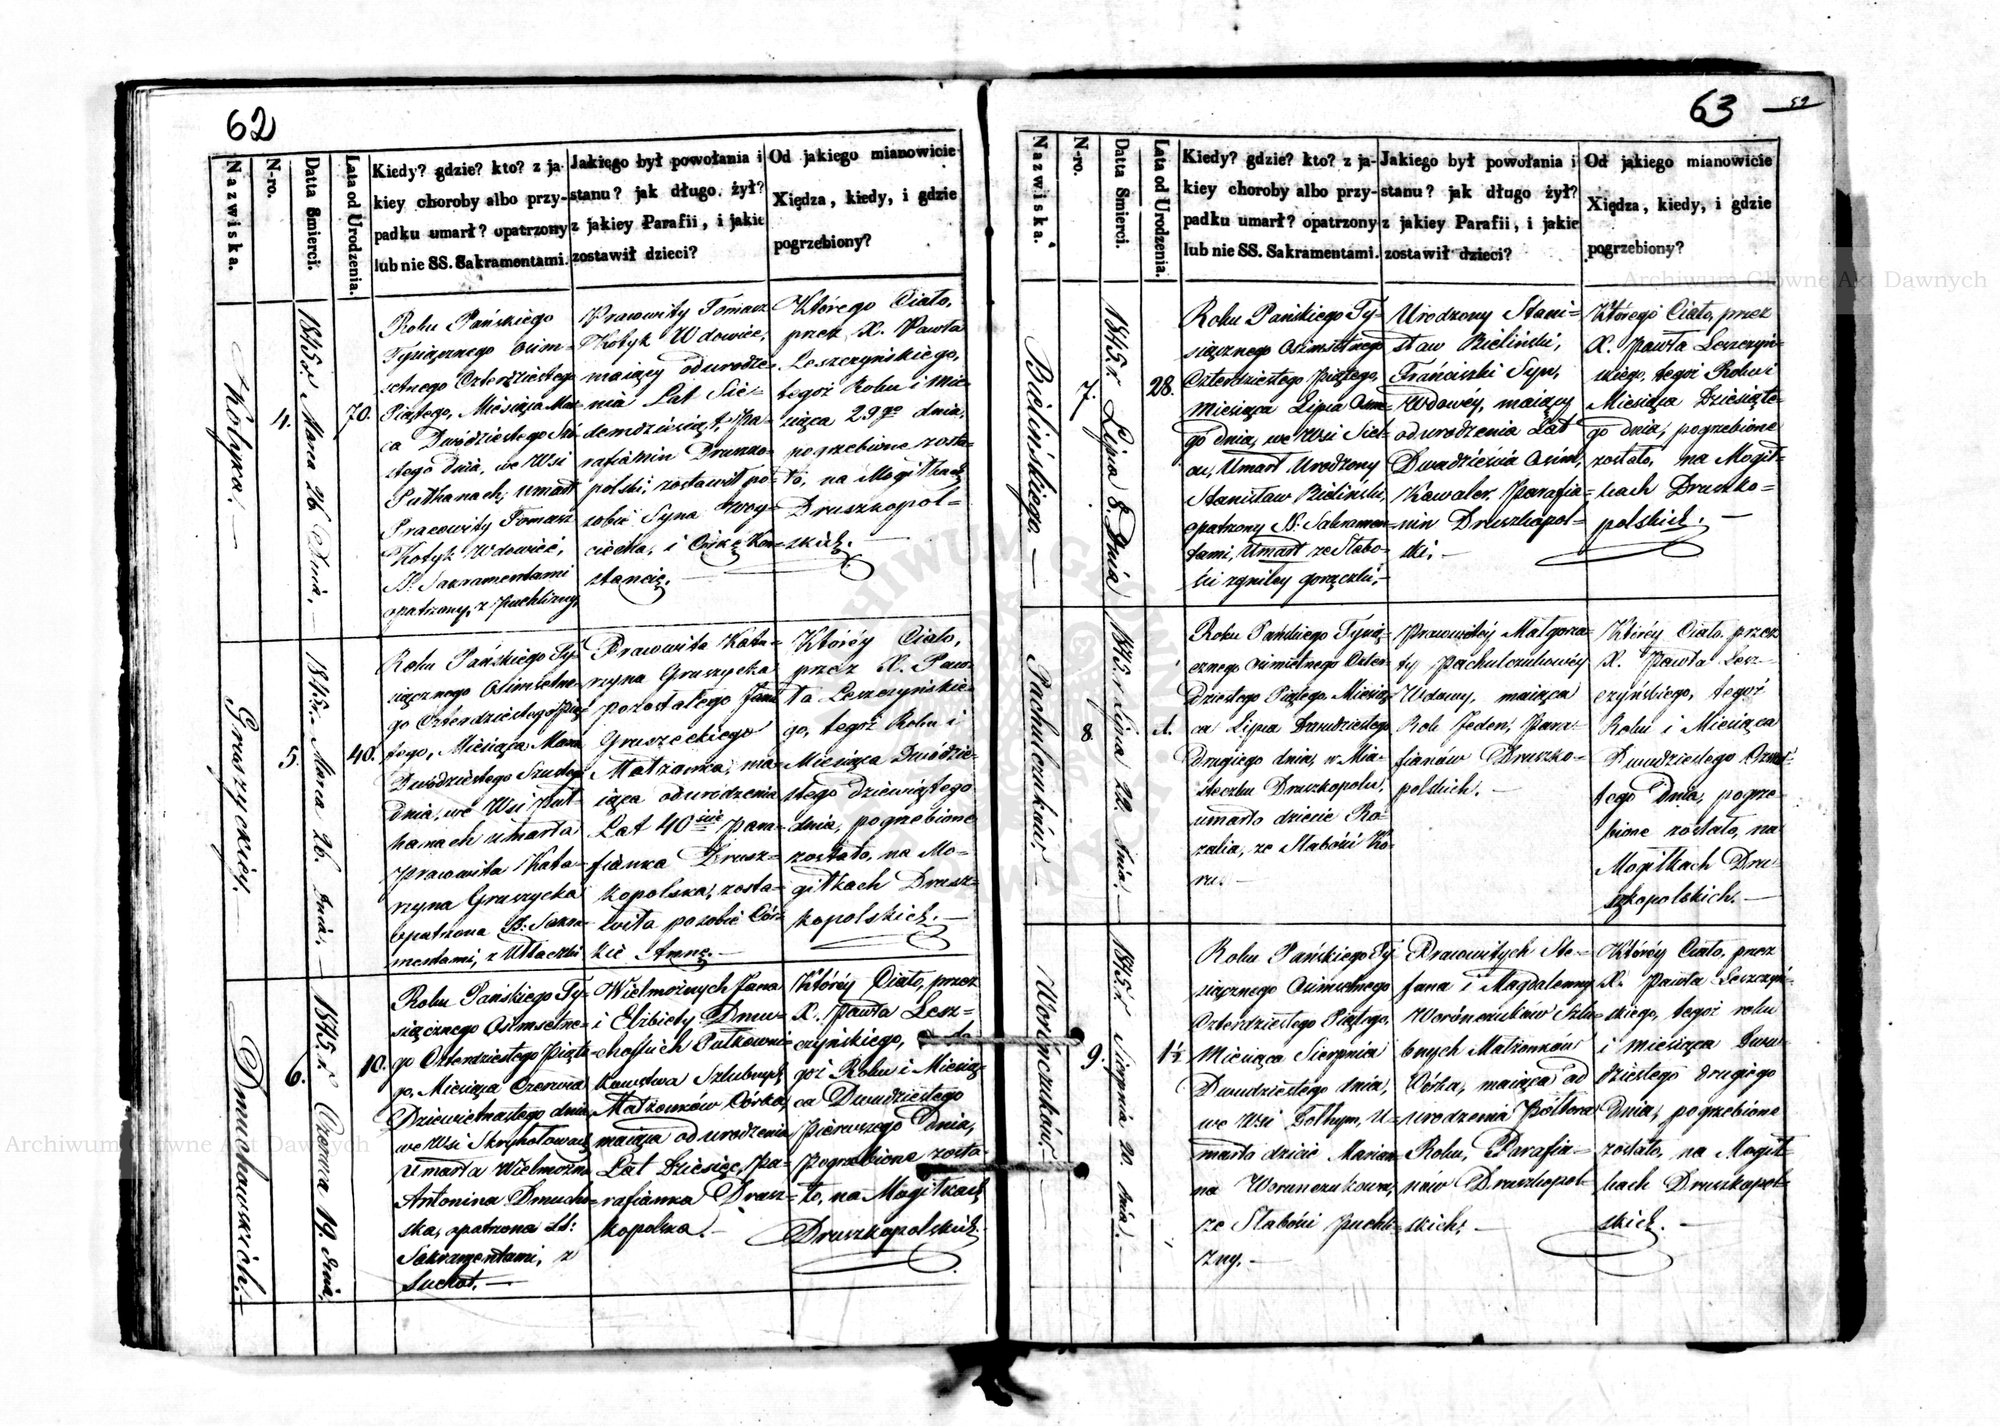 62
Nazwiska.
N-ro.
Datta Smierci.
Lata od Urodzenia.
Kiedy? gdzie? kto? z ja-
kiey choroby albo przy-
padku umarł? opatrzony
lub nie SS. Sakramentami.
Jakiego był powołania i
stanu? jak długo żył?
z jakiey Parafii, i jakie
zostawił dzieci?
Od jakiego mianowicie
Xiędza, kiedy, i gdzie
pogrzebiony?
Kotyka. —
4.
1845. r. Marca 26. Dnia. —
70.
Roku Pańskiego
Tysiącznego Osim-
setnego Czterdziestego
Piątego, Miesiąca Mar-
ca Dwódziestego Szó-
stego dnia, we Wsi
Pułhanach, umarł
Pracowity Tomasz
Kotyk Wdowiec,
SS. Sakramentami
opatrzony, z Puchliny.
Pracowity Tomasz
Kotyk Wdowiec,
maiący od urodze-
nia Lat Sie-
demdziesiąt, Pa-
rafianin Druszko-
polski, zostawił po
sobie Syna Woy-
ciecha, i Córkę Kon-
stancię. —
Którego Ciało,
przez X. Pawła
Leszczyńskiego,
tegoż Roku i Mie-
siąca 29go dnia,
pogrzebione zosta-
ło, na Mogiłkach
Druszkopol-
skich. —
Gruszyckiey.
5.
1845. r. Marca 26. dnia. —
40.
Roku Pańskiego Ty-
siącznego Osimsetne-
go Czterdziestego Pią-
tego, Miesiąca Marca
Dwódziestego Szustego
Dnia, we Wsi Puł-
hanach umarła
Pracowita Kata-
rzyna Gruszycka
opatrzona SS: Sakra-
mentami, z
Pracowita Kata-
rzyna Gruszycka
pozostałego Jana
Gruszeckiego
Małżonka, ma-
iąca od urodzenia
Lat 40ści Para-
fianka Drusz-
kopolska, zosta-
wiła po sobie Cór-
kie Annę. —
Którey Ciało,
przez X. Paw-
ła Leszczyńskie-
go, tegoż Roku i
Miesiąca Dwódzie-
stego dziewiątego
dnia, pogrzebione
zostało, na Mo-
giłkach Drusz-
kopolskich. —
Dmuchowskich. —
6.
1845. r. Czerwca 19. dnia.
10.
Roku Pańskiego Ty-
siącznego Osimsetne-
go Czterdziestego Piąte-
go, Miesiąca Czerwca
Dziewietnastego dnia,
we Wsi
Umarła Wielmożna
Antonina Dmuchow-
ska, opatrzona SS:
Sakramentami, z
Suchot. —
Wielmożnych Jana
i Elżbiety Dmu-
chowskich Pułkowni-
kowstwa Szlubnych
Małżonków Córka,
maiąca od urodzenia
Lat Dziesięć, Pa-
rafianka Drusz-
kopolska. —
Którey Ciało, przez
X. Pawła Lesz-
czyńskiego, te-
goż Roku i Miesią-
ca Dwudziestego
Pierwszego Dnia,
Pogrzebione zosta-
ło, na Mogiłkach
Druszkopolskich.
63
52
Nazwiska.
N-ro.
Datta Smierci.
Lata od Urodzenia.
Kiedy? gdzie? kto? z ja-
kiey choroby albo przy-
padku umarł? opatrzony
lub nie SS. Sakramentami.
Jakiego był powołania i
stanu? jak długo żył?
z jakiey Parafii, i jakie
zostawił dzieci?
Od jakiego mianowicie
Xiędza, kiedy, i gdzie
pogrzebiony?
Bielińskiego. —
7.
1845. r. Lipca 8. Dnia
28.
Roku Pańskiego Ty-
siącznego Osimsetnego
Czterdziestego Piątego,
Miesiąca Lipca Osme-
go dnia, we Wsi Siel-
cu, Umarł Urodzony
Stanisław Bieliński,
opatrzony SS: Sakramen-
tami, Umarł ze Słabo-
ści zgniłey gorączki. —
Urodzony Stani-
sław Bieliński,
Franciszki Syn,
Wdowey, maiący
od urodzenia Lat
Dwadzieścia Osim,
Kawaler, Parafia-
nin Druszkopol-
ski. —
Którego Ciało, przez
X. Pawła Leszczyń-
skiego, tegoż Roku i
Miesiąca Dziesiąte-
go dnia, pogrzebione
zostało, na Mogił-
kach Druszko-
polskich. —
Pachulczuków. —
8
1845. r. Lipca 22. dnia. —
1.
Roku Pańskiego Tysią-
cznego Osimsetnego Czter-
dziestego Piątego Miesią-
ca Lipca Dwudziestego
Drugiego dnia, w Mia-
steczku Druszkopolu,
umarło dziecie Ro-
zalia, ze Słabości Ko-
ru. —
Pracowitey Małgorza-
ty Pachulczukowéy
Wdowy, maiąca
Rok Jeden, Para-
fianów Druszko-
polskich. —
Którey Ciało przez
X. Pawła Lesz-
czyńskiego, tegoż
Roku i Miesiąca
Dwudziestego Czwar-
tego Dnia, pogrze-
bione zostało, na
Mogiłkach Dru-
szkopolskich. —
Worończuków. —
9.
1845. r. Sierpnia 20. dnia. —
1½
Roku Pańskiego Ty-
siącznego Osimsetnego
Czterdziestego Piątego,
Miesiąca Sierpnia
Dwudziestego dnia,
we Wsi U-
marło dziecie Marian-
na Worończukowa,
ze Słabości Puchli-
zny. —
Pracowitych Ste-
fana i Magdalenny
Worończuków Szlu-
bnych Małżonków
Córka, maiąca od
urodzenia Półtora
Roku, Parafia-
nów Druszkopol-
skich. —
Którey Ciało, przez
X. Pawła Leszczyń-
skiego, tegoż roku
i miesiąca Dwu-
dziestego drugiego
Dnia, pogrzebione
zostało, na Mogił-
kach Druszkopol-
skich. —
Archiwum Główne Akt Dawnych
Archiwum Główne Akt Dawnych